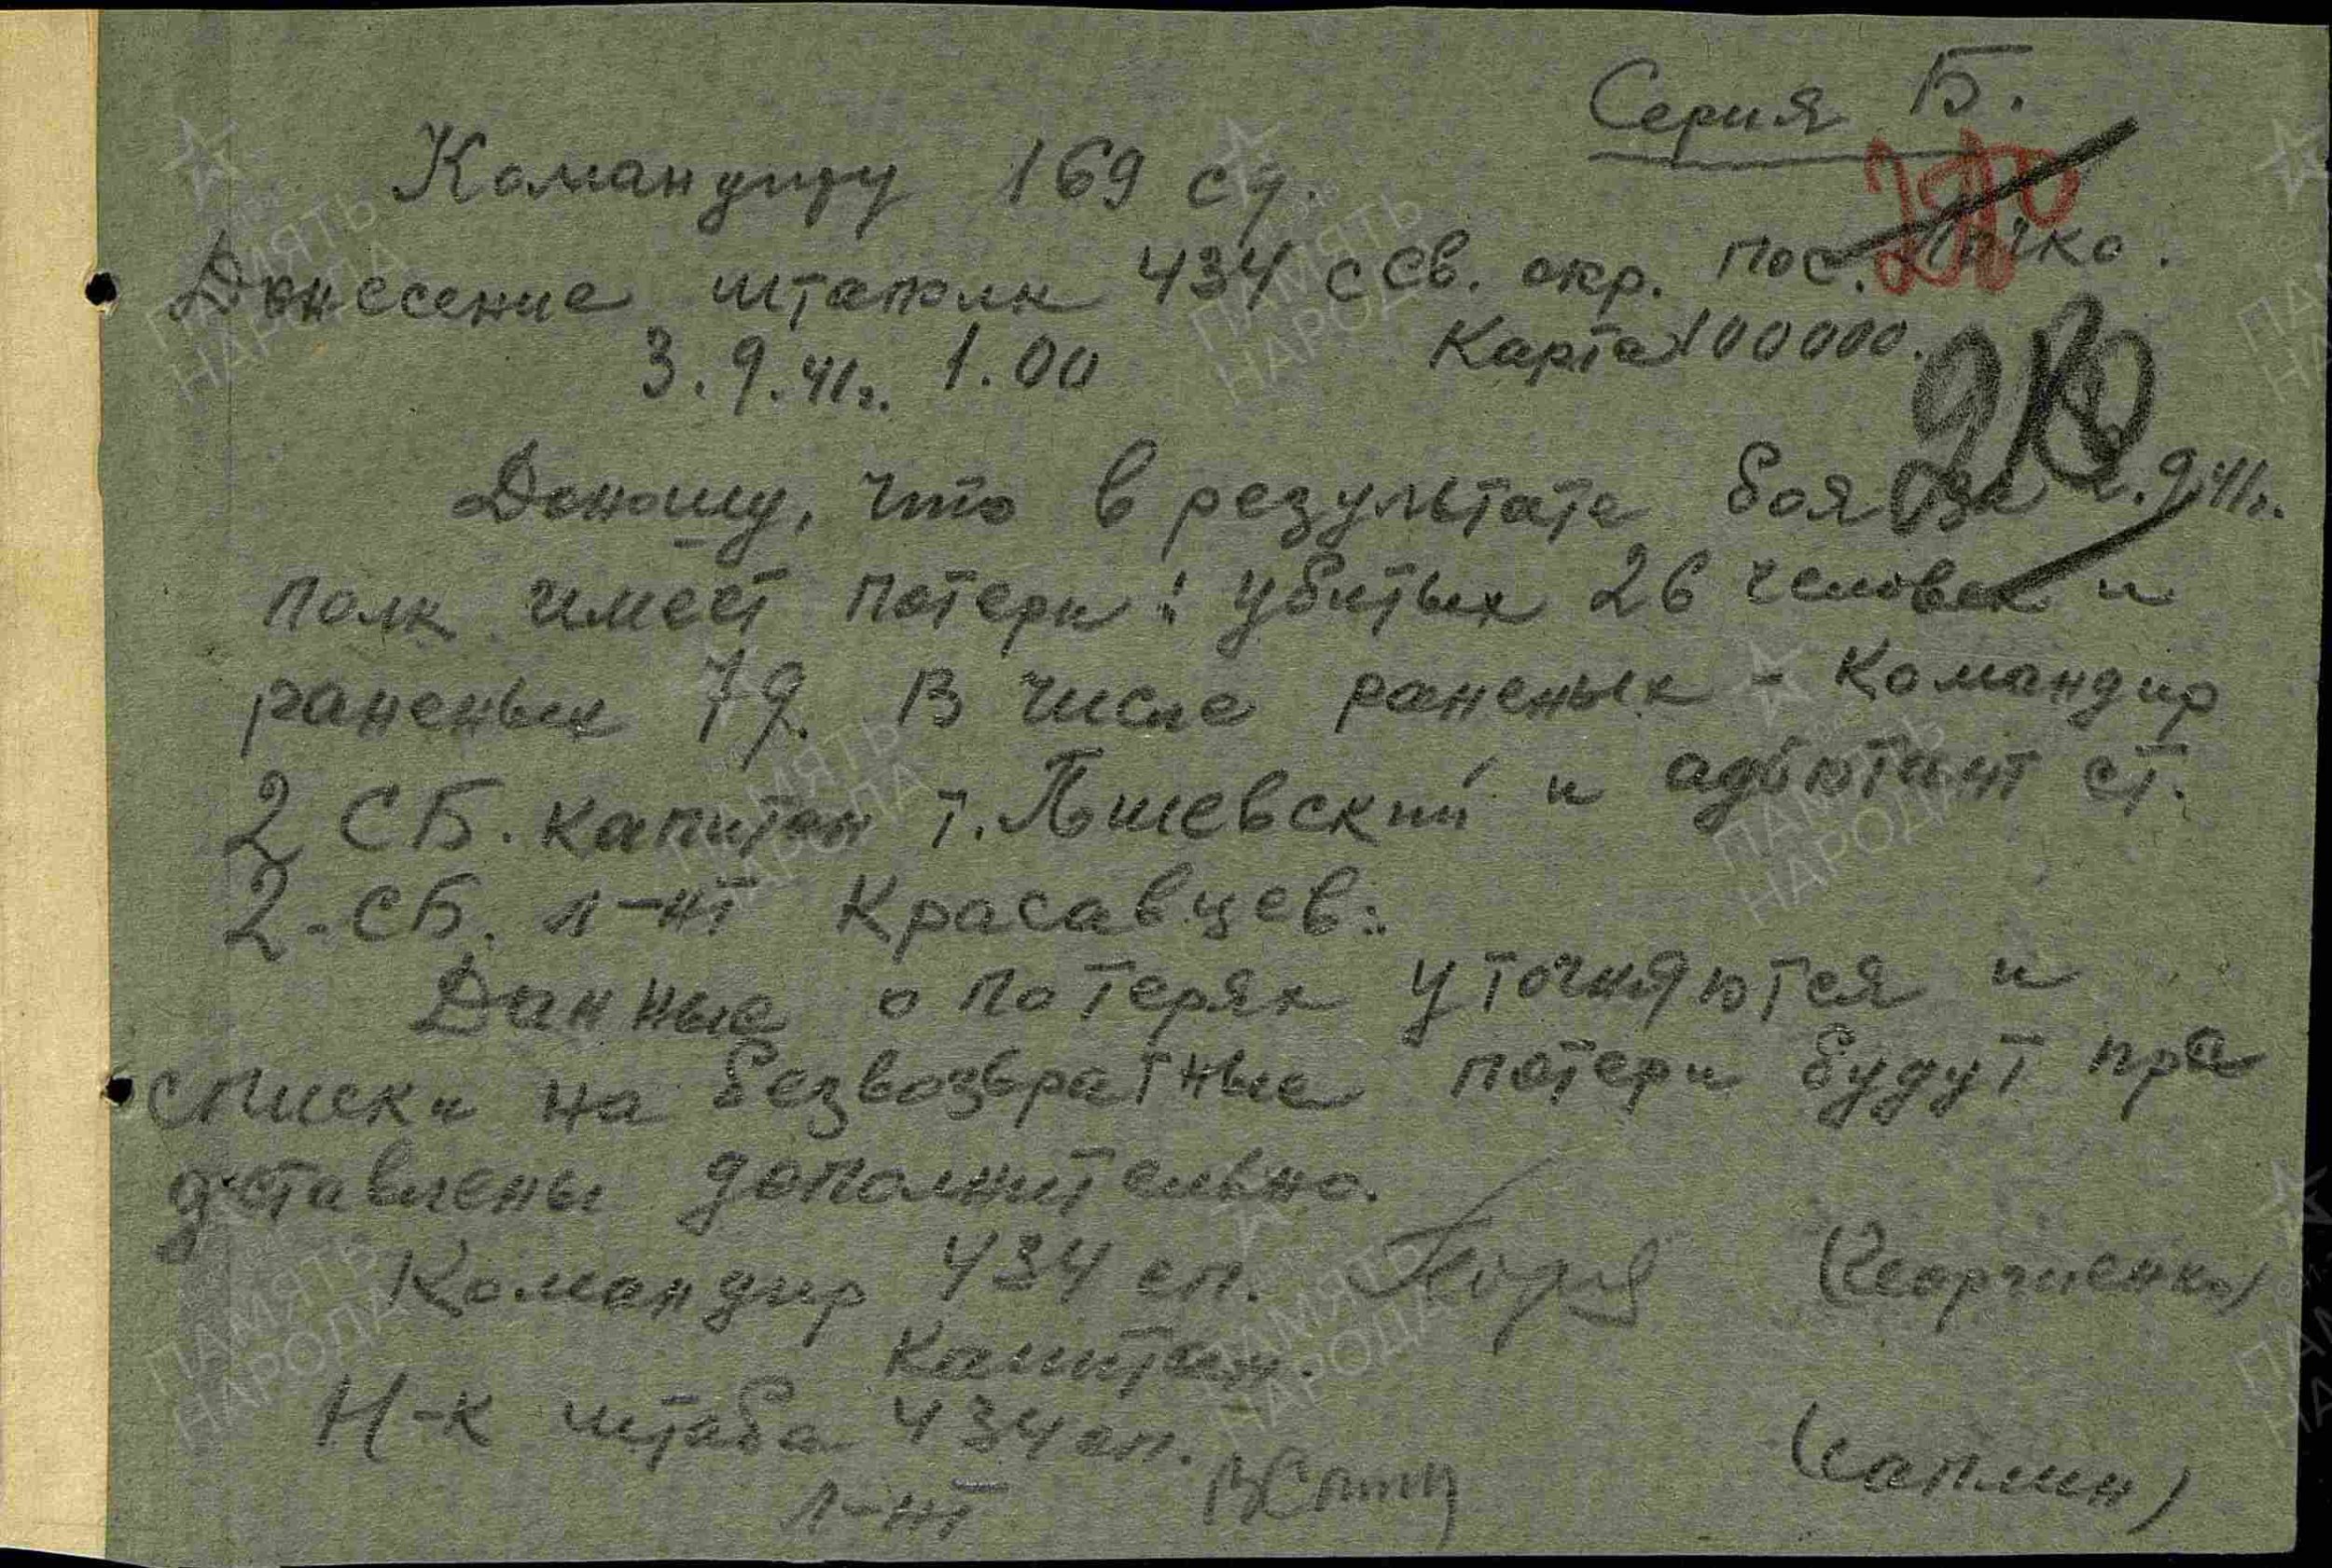 Серия Б.
Командиру 169 сд.
Донесение штаполк 434 ссв. окр. пос.
3.9.41г. 1.00 Карта 100000.
Доношу, что в результате боя за 2.9.41г.
полк имеет потери: убитых 26 человек и
раненых 79. В числе раненых - командир
2 СБ. капитан т. Льшевский и адъютант ст.
2-СБ. л-нт Красавцев.
Данные о потерях уточняются и
списки на безвозвратные потери будут пре
дставлены дополнительно.
Командир 434 сп.
капитан.
Н-к штаба 434 сп.
л-нт (Саплин)
ПАМЯТЬ НАРОДА